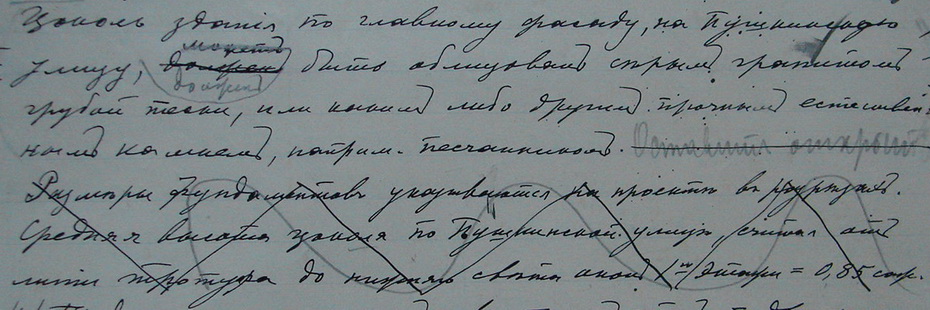 Цоколь зданія по главному фасаду, на Пушкинскую
можетъ
улицу, долженъ быть облицованъ сѣрымъ гранитомъ
долженъ
грубой тески, или какимъ либо другимъ прочнымъ естествен-
нымъ камнемъ, наприм. песчанникомъ. Оставить открыт
Размѣры фундаментовъ указываются на проектѣ въ
Средняя высота цоколя по Пушкинской улицѣ, считая отъ
линіи тротуара до нижняго свѣта оконъ этажа = 0,85 саж.